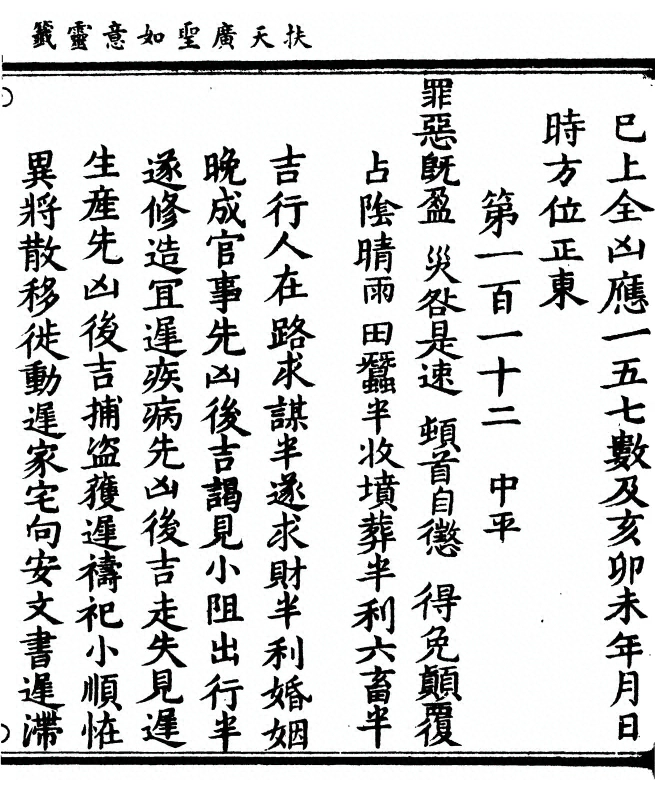 扶天廣聖如意靈籤
巳上全凶應一五七數及亥卯未年月日
時方位正東
第一百一十二　中平
罪惡旣盈　災咎是速　頓首自懲　得免顛覆
占陰晴雨　田蠶半收墳葬半利六畜半
吉行人在路求謀半遂求財半利婚姻
晚成官事先凶後吉謁見小阻出行半
遂修造宜遲疾病先凶後吉走失見遲
生産先凶後吉捕盜獲遲禱祀小順恠
異將散移徙動遲家宅向安文書遲滯